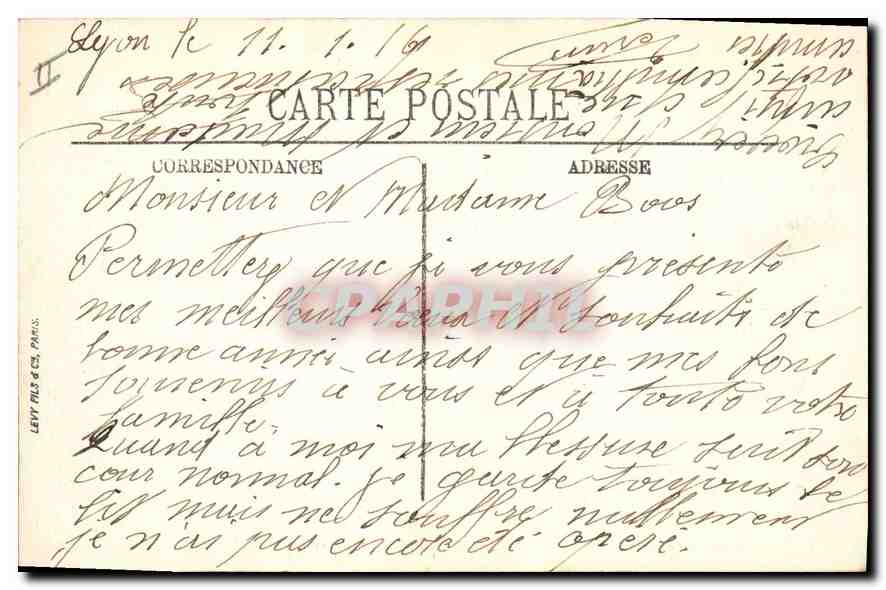 Lyon le 11. 1. 16
II
CARTE POSTALE
CORRESPONDANCE
ADRESSE
Monsieur et Madame Boos
Permettez que je vous présente
mes meilleurs voeux et souhaits de
bonne année ainsi que mes bons
souvenirs à vous et à toute votre
famille.
Quand à moi ma blessure suit son
cour normal. je garde toujours le
lit mais ne souffre nullement
je n'ai pas encore été opéré.
Recevez Monsieur et Madame
LEVY FILS & Cie, PARIS.
CPAPHIL